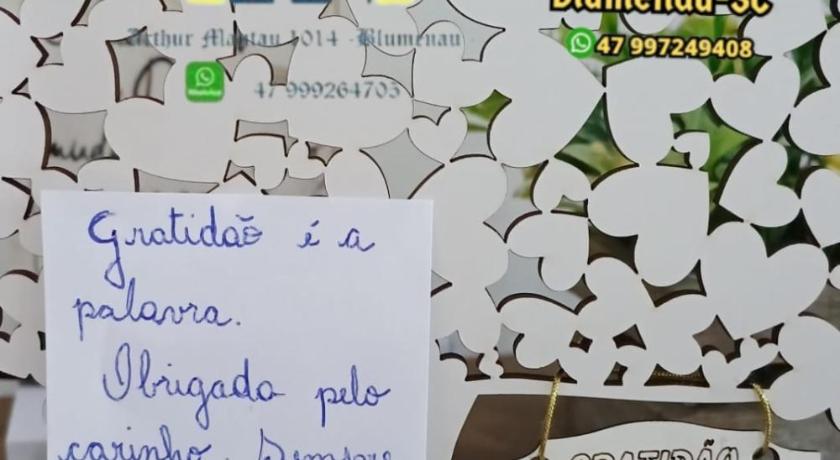 Blumenau-SC
47 997249408
Arthur Mantau 1014 - Blumenau
47 999264705
Gratidão é a
palavra.
Obrigada pelo
carinho. Sempre
GRATIDÃO